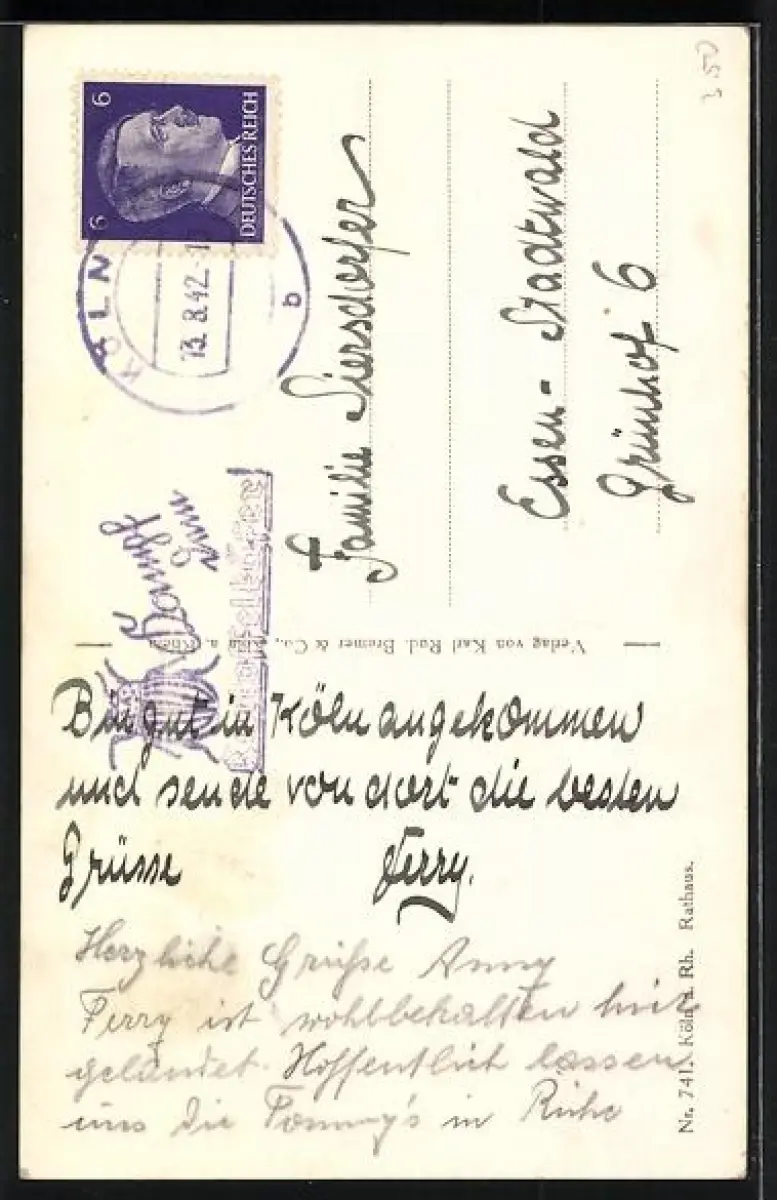 3.50
6 6
DEUTSCHES REICH
KÖLN
13.8.42
b
Kampf
dem
Kartoffelkäfer
Familie Siersdorfer
Essen-Stadtwald
Grünhof 6
Verlag von Karl Rud. Bremer & Co., Köln a. Rhein
Bin gut in Köln angekommen
und sende von dort die besten
Grüsse Ferry.
Herzliche Grüße Anny
Ferry ist wohlbehalten hier
gelandet. Hoffentlich lassen
uns die Tommy's in Ruhe
Nr. 741. Köln a. Rh. Rathaus.